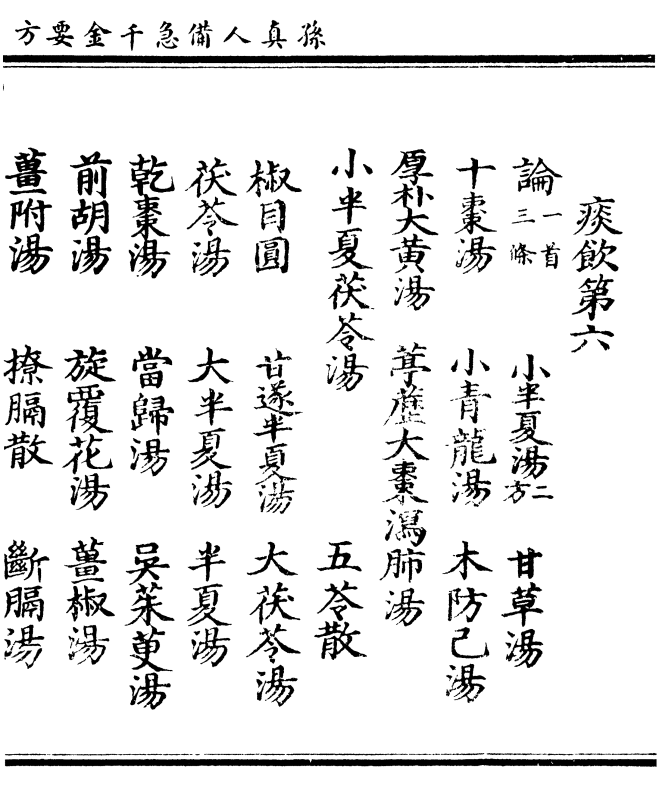 孫真人備急千金要方
痰飲第六
論一首三條 小半夏湯二方 甘草湯
十棗湯 小青龍湯 木防己湯
厚朴大黃湯 葶藶大棗瀉肺湯
小半夏茯苓湯 五苓散
椒目圓 甘遂半夏湯 大茯苓湯
茯苓湯 大半夏湯 半夏湯
乾棗湯 當歸湯 吳茱萸湯
前胡湯 旋覆花湯 薑椒湯
薑附湯 撩膈散 斷膈湯